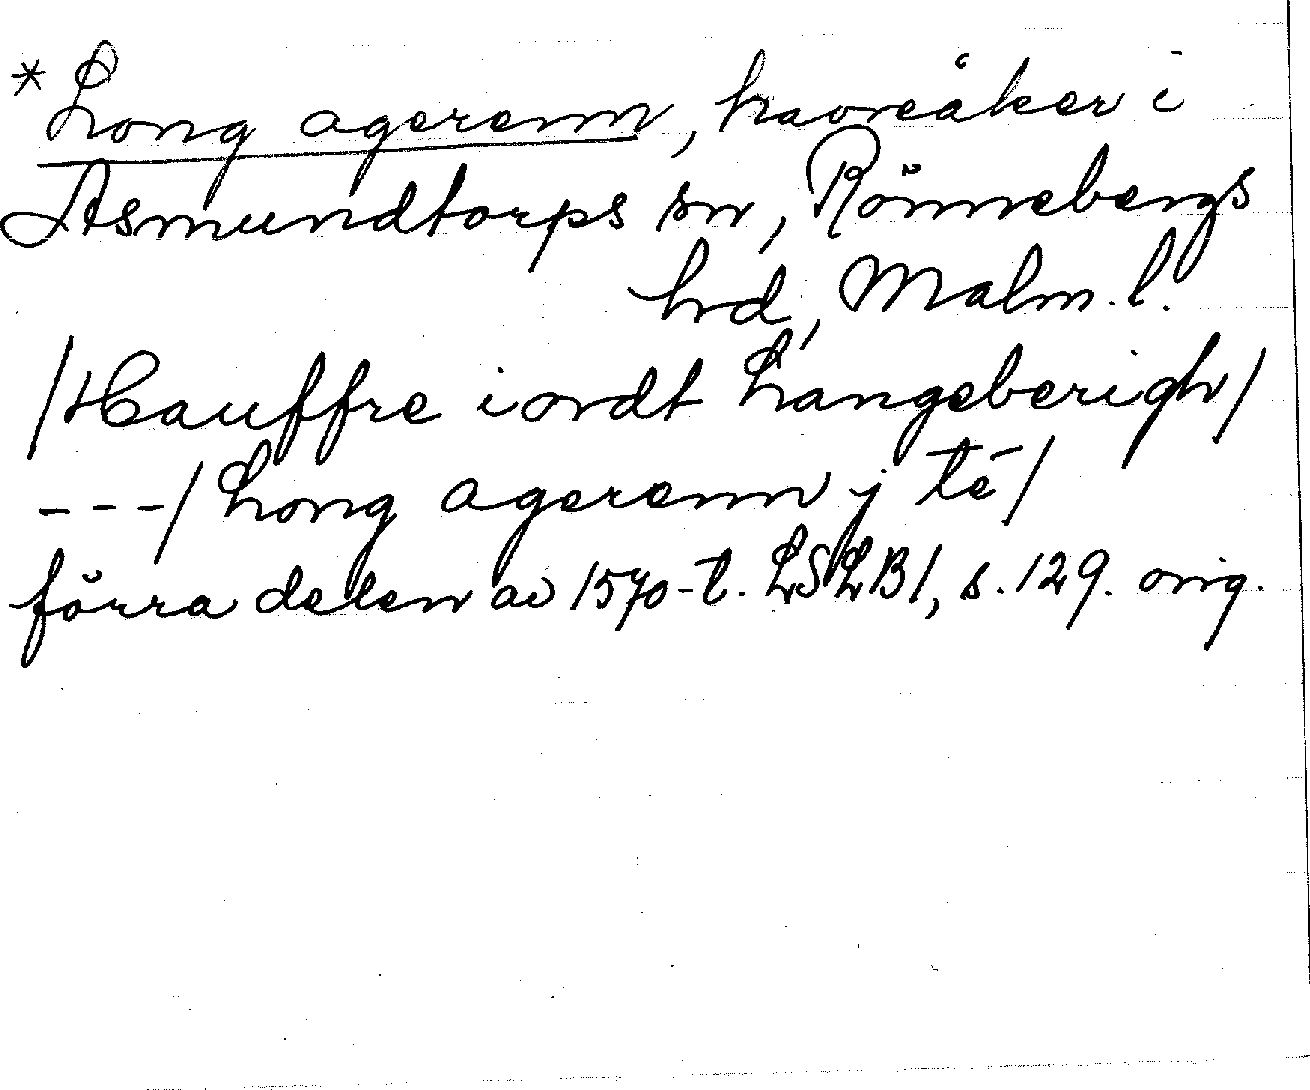 * Long agerenn, havreåker i
Asmundtorps sn, Rönnebergs
hd, Malm. l.
/Hauffre iordt Langeberigh/
---/Long agerenn j té/
förra delen av 1570-t. LSLB1, s. 129. orig.